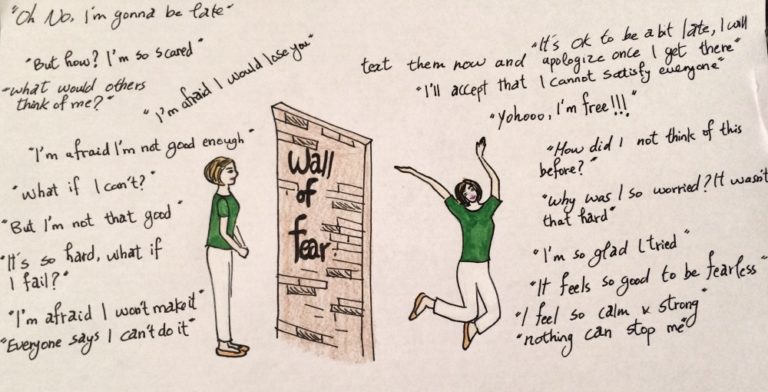 "Oh No, I'm gonna be late"
"But how? I'm so scared"
"what would others
think of me?"
"I'm afraid I would lose you"
"I'm afraid I'm not good enough"
"What if I can't?"
"But I'm not that good"
"It's so hard, what if
I fail?"
"I'm afraid I won't make it"
"Everyone says I can't do it"
Wall
of
fear
"It's ok to be a bit late, I will
text them now and apologize once I get there"
"I'll accept that I cannot satisfy everyone"
"Yohooo, I'm free!!!"
"How did I not think of this
before?"
"Why was I so worried? It wasn't
that hard"
"I'm so glad I tried"
"It feels so good to be fearless"
"I feel so calm & strong"
"nothing can stop me"